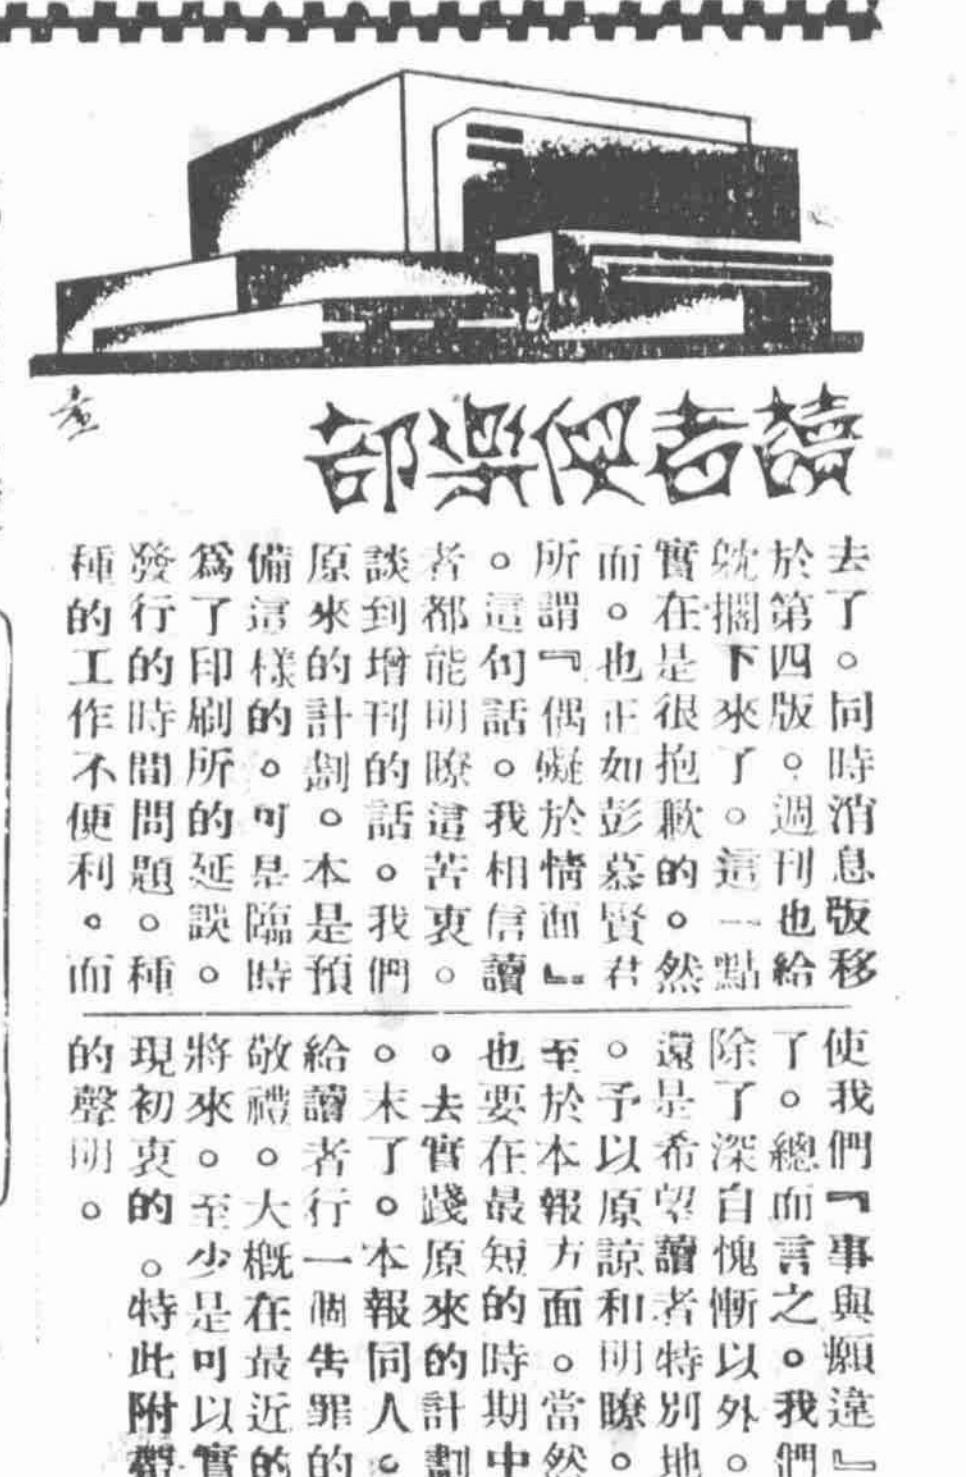 讀者俱樂部
去了。同時消息版移
於第四版。週刊也給
躭擱下來了。這一點
實在是很抱歉的。然
而。也正如彭慕賢君
所謂『偶礙於情面』
。這句話。我相信讀
者都能明瞭這苦衷。
談到增刊的話。我們
原來的計劃。本是預
備這樣的。可是臨時
爲了印刷所的延誤。
發行的時間問題。種
種的工作不便利。而
使我們『事與願違』
了。總而言之。我們
除了深自愧慚以外。
還是希望讀者特別地
。予以原諒和明瞭。
至於本報方面。當然
也要在最短的時期中
。去實踐原來的計劃
。末了。本報同人。
給讀者行一個告罪的
敬禮。大概在最近的
將來。至少是可以實
現初衷的。特此附帶
的聲明。